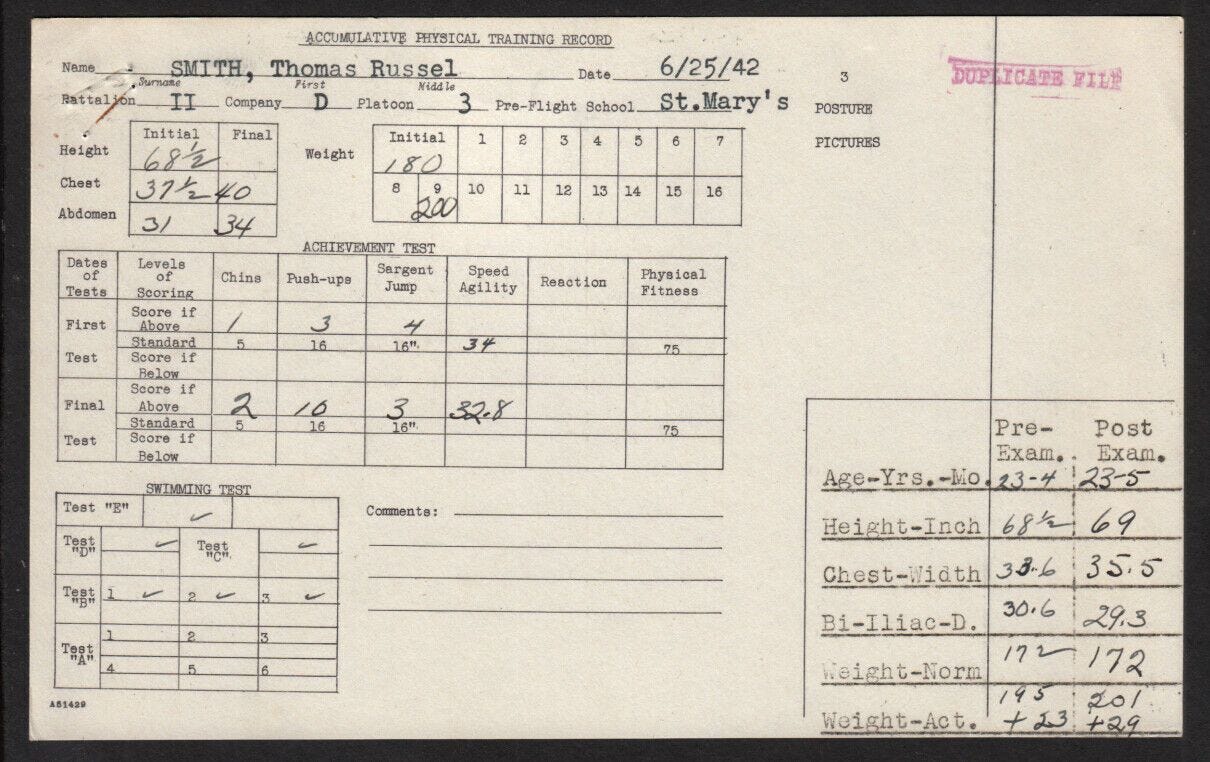 ACCUMULATIVE PHYSICAL TRAINING RECORD
Name SMITH, Thomas Russel Date 6/25/42 3
Surname First Middle
Battalion II Company D Platoon 3 Pre-Flight School St.Mary's POSTURE
PICTURES
DUPLICATE FILE
Initial Final
Height 68½
Chest 37½ 40
Abdomen 31 34
Weight Initial 1 2 3 4 5 6 7
180
8 9 10 11 12 13 14 15 16
200
ACHIEVEMENT TEST
Dates of Tests Levels of Scoring Chins Push-ups Sargent Jump Speed Agility Reaction Physical Fitness
First Test Score if Above 1 3 4
Standard 5 16 16" 34 75
Score if Below
Final Test Score if Above 2 10 3 32.8
Standard 5 16 16" 75
Score if Below
SWIMMING TEST
Test "E" ✓
Test "D" ✓ Test "C" ✓
Test "B" 1 ✓ 2 ✓ 3 ✓
Test "A" 1 2 3
4 5 6
A51429
Comments:
Pre-Exam. Post Exam.
Age-Yrs.-Mo. 23-4 23-5
Height-Inch 68½ 69
Chest-Width 33.6 35.5
Bi-Iliac-D. 30.6 29.3
Weight-Norm 172 172
Weight-Act. 195 201
+23 +29